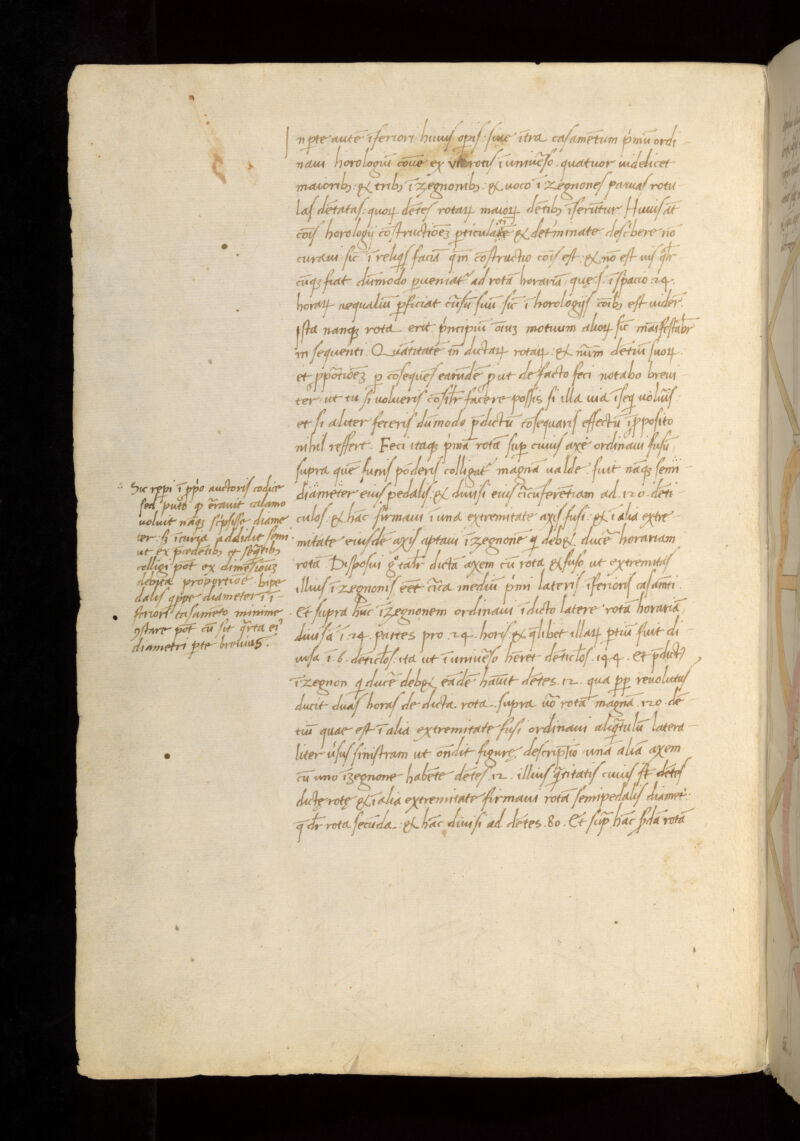 In pte aute īferiori huius opis siue ītra casamentum pmū ordi
naui horologiū cōue ex rotis ī uniuso quatuor uidelicet
maioribȝ et tribȝ īzegnonibȝ et uoco īzegnones paruas rotu
las dētatas quoꝝ dētes rotaꝝ maioꝝ dētibȝ īserūtur Huius āt
cōis horologij cōstructiōeȝ pticulare et determinate describere nō
curaui sic ī reliqs faciā qm cōstructio cōis est et nō est uis qlr
cūqȝ fiat dūmodo pueniat ad rotā horariā que ī spacio 24
horaꝝ neqaliū pficiat cursū suū sic ī horologijs cōibȝ est uider
Ista nanqȝ rota erit pncipiū oiuȝ motuum alioꝝ sic maīfestabr
in sequenti Quātitatē tn dictaꝝ rotaꝝ et nūm dētiū suoꝝ
et ppōtiōeȝ p cōseques earūdē put de facto feci notabo breui
ter ut tu si uolueris cōsilr facere possis si illa uia īseq uolūis
et si aliter feceris dūmodo pdictū cōsequaris effectū ī pposito
nihil reffert. Feci itaqȝ pmā rotā sup cuius axē ordinaui fusū
supra quē funis pōderis colligat magnā ualde fuit nāqȝ semi
diameter eius pedalis et diuisi eius circūferētiam ad 120 dēti
culos et hāc firmaui ī una extremitate axis fusi et ī alia extre
mitate eiusdē axis aptaui īzegnonē q debȝ ducē horariam
rotā Disposui g talr dictā axem cū rota et fuso ut extremitas
illius īzegnonis eēt circa mediū pmi lateris īferioris casamēti.
Et supra hūc īzegnonem ordinaui ī dicto latere rotā horariā
diuisā ī 24 partes pro 24 horis et qlibet illaꝝ ptiū fuit di
uisa ī 6 dēticlos ita ut ī uniuso herēt dēticlos 144. Et pdictȝ
īzegnon q ducē debȝ eādē hauit dētes 12 qua pp reuolutus
ducit duas horas de dicta rota supra uō rotā magnā 120 dē
tiū quae est ī alia extremitate fusi ordinaui aliqtulū latera
liter usus sinistram ut ondit figurę descriptio unā aliā axem
cū uno īzegnone habēte dētes 12 illius qtitatis cuius st dētes
dictę rotę et ī alia extremitate firmaui rotā semipedalis diamet
q dr rota secunda et hāc diuisi ad dētes 80. Et sup hāc sdā rotā
Sic repi ī ppo auctoris codice
sed puto q errauit calamo
uoluit nāqȝ scpsisse diame
ter et īcuria addidit semi
ut ex pcedētibȝ et seqtibȝ
colligi pōt ex dimēsionȝ
debita proportiōe bipe
dalis qppe diameter ī ī
feriori casamēto minime
ɔstare pōt cū sit qrta eiꝰ
diametri pte breuius.